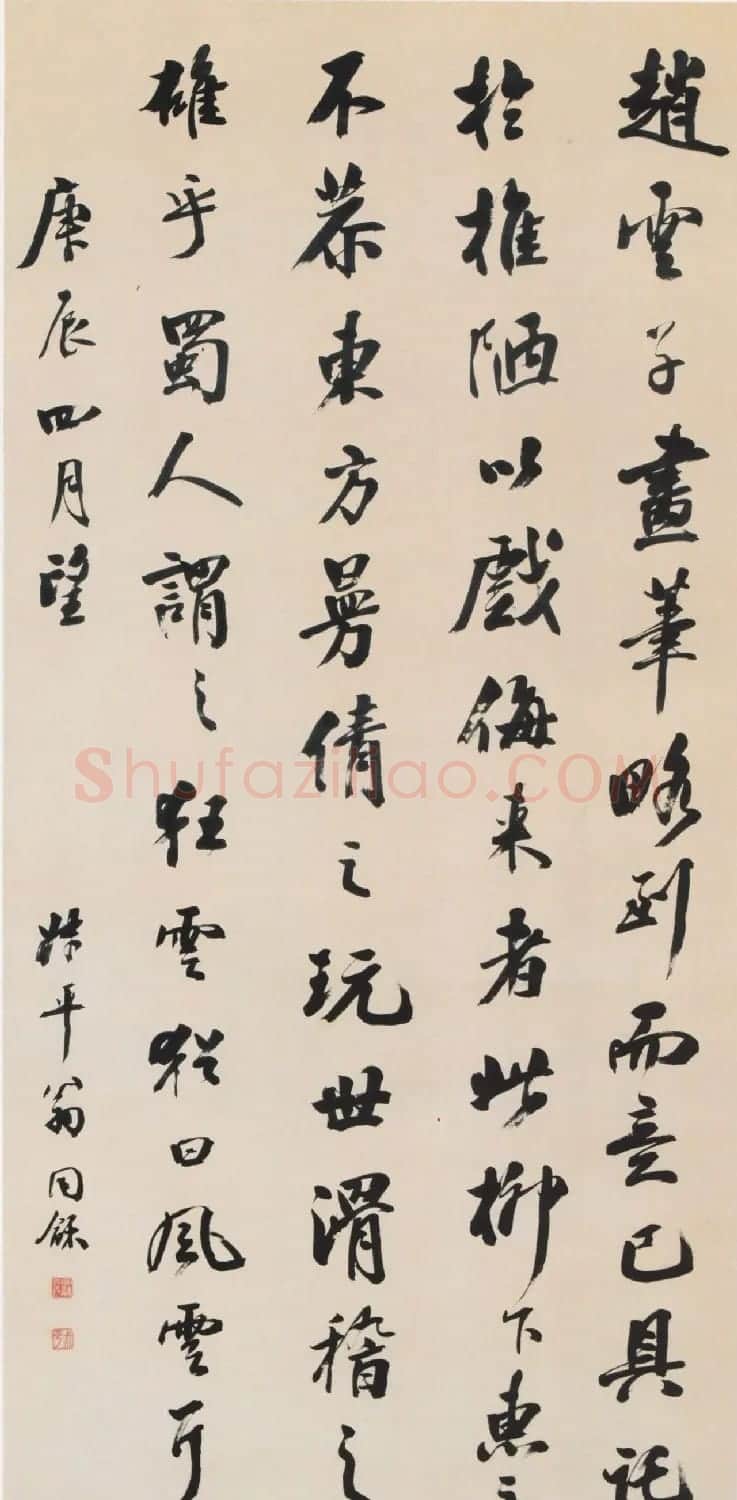 趙雲子畫筆略到而意已具託
於椎陋以戲侮来者此柳下惠之
不恭東方曼倩之玩世滑稽之
雄乎蜀人謂之狂雲猶曰風雲耳
庚辰四月望
叔平翁同龢
Shufaziliao.COM